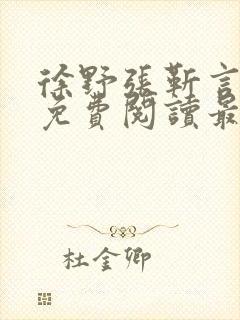 徐野張靳言
免費閱讀最
杜金卿